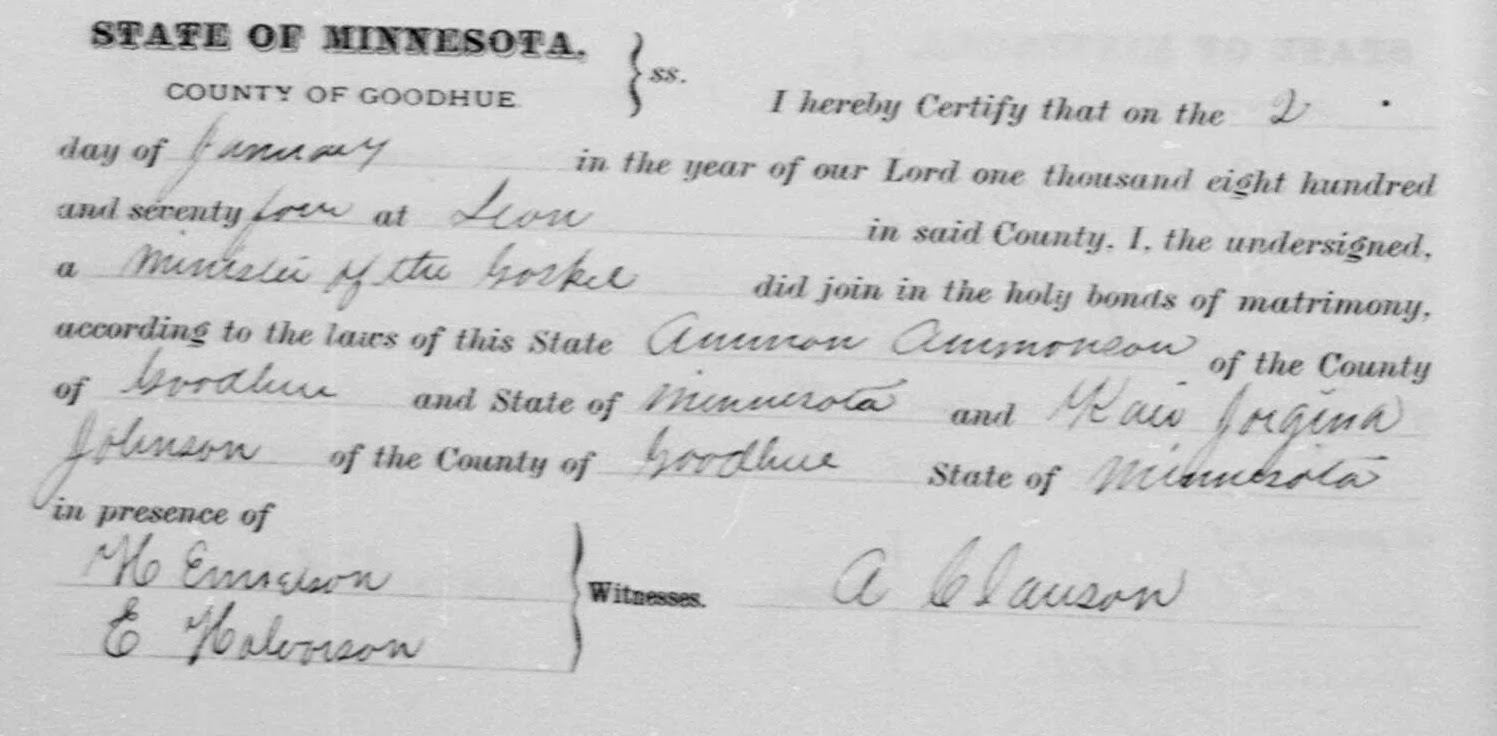 STATE OF MINNESOTA,
COUNTY OF GOODHUE } ss.
I hereby Certify that on the 2
day of January in the year of our Lord one thousand eight hundred
and seventy four at Leon in said County, I, the undersigned,
a Minister of the Gospel did join in the holy bonds of matrimony,
according to the laws of this State Ammon Ammonson of the County
of Goodhue and State of Minnesota and Jorgina
Johnson of the County of Goodhue State of Minnesota
in presence of
H Emerson
E Halvorson
} Witnesses.
A Clauson